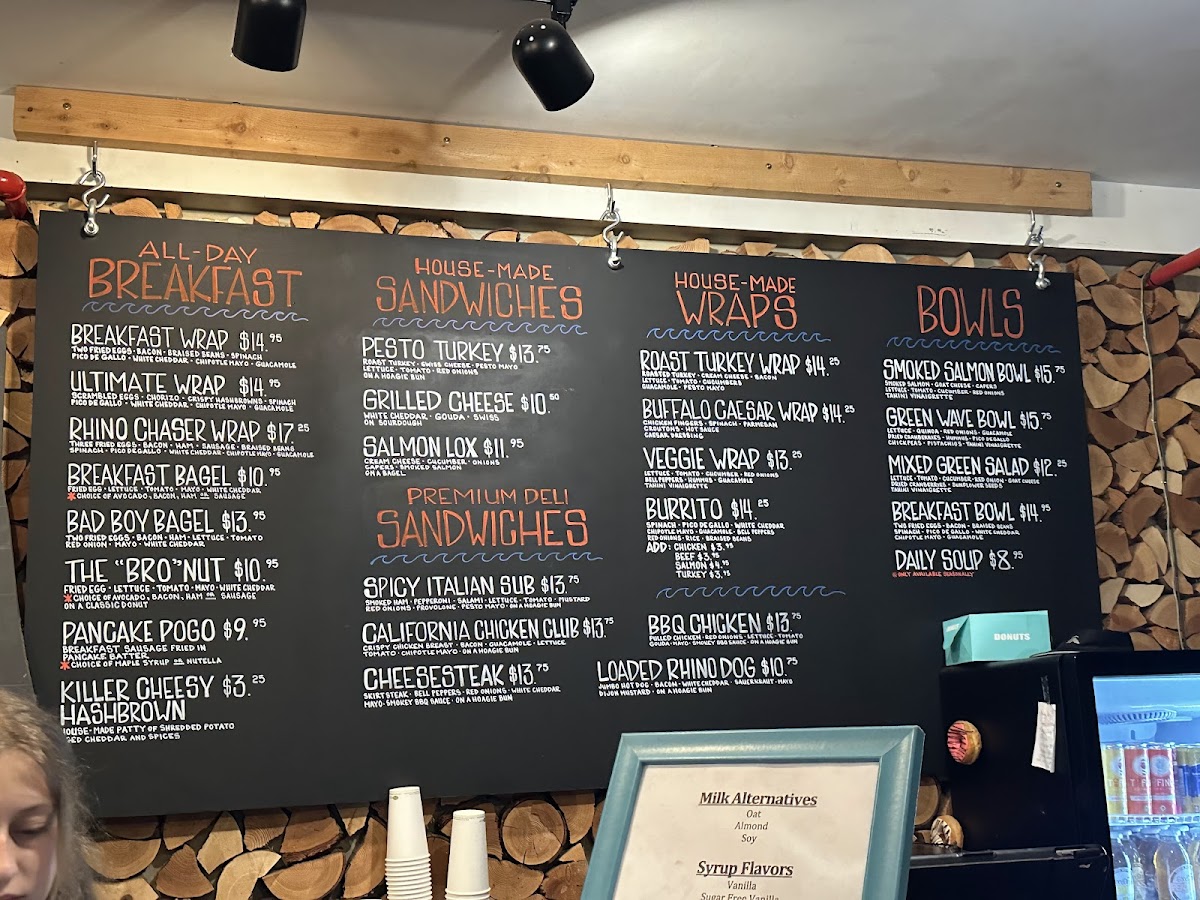 ALL-DAY
BREAKFAST
BREAKFAST WRAP $14.95
TWO FRIED EGGS · BACON · BRAISED BEANS · SPINACH
PICO DE GALLO · WHITE CHEDDAR · CHIPOTLE MAYO · GUACAMOLE
ULTIMATE WRAP $14.95
SCRAMBLED EGGS · CHORIZO · CRISPY HASHBROWNS · SPINACH
PICO DE GALLO · WHITE CHEDDAR · CHIPOTLE MAYO · GUACAMOLE
RHINO CHASER WRAP $17.25
THREE FRIED EGGS · BACON · HAM · SAUSAGE · BRAISED BEANS
SPINACH · PICO DE GALLO · WHITE CHEDDAR · CHIPOTLE MAYO · GUACAMOLE
BREAKFAST BAGEL $10.95
FRIED EGG · LETTUCE · TOMATO · MAYO · WHITE CHEDDAR
*CHOICE OF AVOCADO, BACON, HAM OR SAUSAGE
BAD BOY BAGEL $13.95
TWO FRIED EGGS · BACON · HAM · LETTUCE · TOMATO
RED ONION · MAYO · WHITE CHEDDAR
THE "BRO"NUT $10.95
FRIED EGG · LETTUCE · TOMATO · MAYO · WHITE CHEDDAR
*CHOICE OF AVOCADO, BACON, HAM OR SAUSAGE
ON A CLASSIC DONUT
PANCAKE POGO $9.95
BREAKFAST SAUSAGE FRIED IN
PANCAKE BATTER
*CHOICE OF MAPLE SYRUP OR NUTELLA
KILLER CHEESY $3.25
HASHBROWN
HOUSE-MADE PATTY OF SHREDDED POTATO
CHEDDAR AND SPICES
HOUSE-MADE
SANDWICHES
PESTO TURKEY $13.75
ROAST TURKEY · SWISS CHEESE · PESTO MAYO
LETTUCE · TOMATO · RED ONIONS
ON A HOAGIE BUN
GRILLED CHEESE $10.50
WHITE CHEDDAR · GOUDA · SWISS
ON SOURDOUGH
SALMON LOX $11.95
CREAM CHEESE · CUCUMBER · ONIONS
CAPERS · SMOKED SALMON
ON A BAGEL
PREMIUM DELI
SANDWICHES
SPICY ITALIAN SUB $13.75
SMOKED HAM · PEPPERONI · SALAMI · LETTUCE · TOMATO · MUSTARD
RED ONIONS · PROVOLONE · PESTO MAYO · ON A HOAGIE BUN
CALIFORNIA CHICKEN CLUB $13.75
CRISPY CHICKEN BREAST · BACON · GUACAMOLE · LETTUCE
TOMATO · CHIPOTLE MAYO · ON A HOAGIE BUN
CHEESESTEAK $13.75
SKIRT STEAK · BELL PEPPERS · RED ONIONS · WHITE CHEDDAR
MAYO · SMOKEY BBQ SAUCE · ON A HOAGIE BUN
HOUSE-MADE
WRAPS
ROAST TURKEY WRAP $14.25
ROASTED TURKEY · CREAM CHEESE · BACON
LETTUCE · TOMATO · CUCUMBERS
GUACAMOLE · PESTO MAYO
BUFFALO CAESAR WRAP $14.25
CHICKEN FINGERS · SPINACH · PARMESAN
CROUTONS · HOT SAUCE
CAESAR DRESSING
VEGGIE WRAP $13.25
LETTUCE · TOMATO · CUCUMBER · RED ONIONS
BELL PEPPERS · HUMMUS · GUACAMOLE
TAHINI VINAIGRETTE
BURRITO $14.25
SPINACH · PICO DE GALLO · WHITE CHEDDAR
CHIPOTLE MAYO · GUACAMOLE · BELL PEPPERS
RED ONIONS · RICE · BRAISED BEANS
ADD: CHICKEN $3.95
BEEF $3.95
SALMON $4.95
TURKEY $3.95
BBQ CHICKEN $13.75
PULLED CHICKEN · RED ONIONS · LETTUCE · TOMATO
GOUDA · MAYO · SMOKEY BBQ SAUCE · ON A HOAGIE BUN
LOADED RHINO DOG $10.75
JUMBO HOT DOG · BACON · WHITE CHEDDAR · SAUERKRAUT · MAYO
DIJON MUSTARD · ON A HOAGIE BUN
BOWLS
SMOKED SALMON BOWL $15.75
SMOKED SALMON · GOAT CHEESE · CAPERS
LETTUCE · TOMATO · CUCUMBER · RED ONIONS
TAHINI VINAIGRETTE
GREEN WAVE BOWL $15.75
LETTUCE · QUINOA · RED ONIONS · GUACAMOLE
DRIED CRANBERRIES · HUMMUS · PICO DE GALLO
CHICKPEAS · PISTACHIOS · TAHINI VINAIGRETTE
MIXED GREEN SALAD $12.25
LETTUCE · TOMATO · CUCUMBER · RED ONION · GOAT CHEESE
DRIED CRANBERRIES · SUNFLOWER SEEDS
TAHINI VINAIGRETTE
BREAKFAST BOWL $14.95
TWO FRIED EGGS · BACON · BRAISED BEANS
SPINACH · PICO DE GALLO · WHITE CHEDDAR
CHIPOTLE MAYO · GUACAMOLE
DAILY SOUP $8.95
ONLY AVAILABLE SEASONALLY
DONUTS
Milk Alternatives
Oat
Almond
Soy
Syrup Flavors
Vanilla
Sugar Free Vanilla